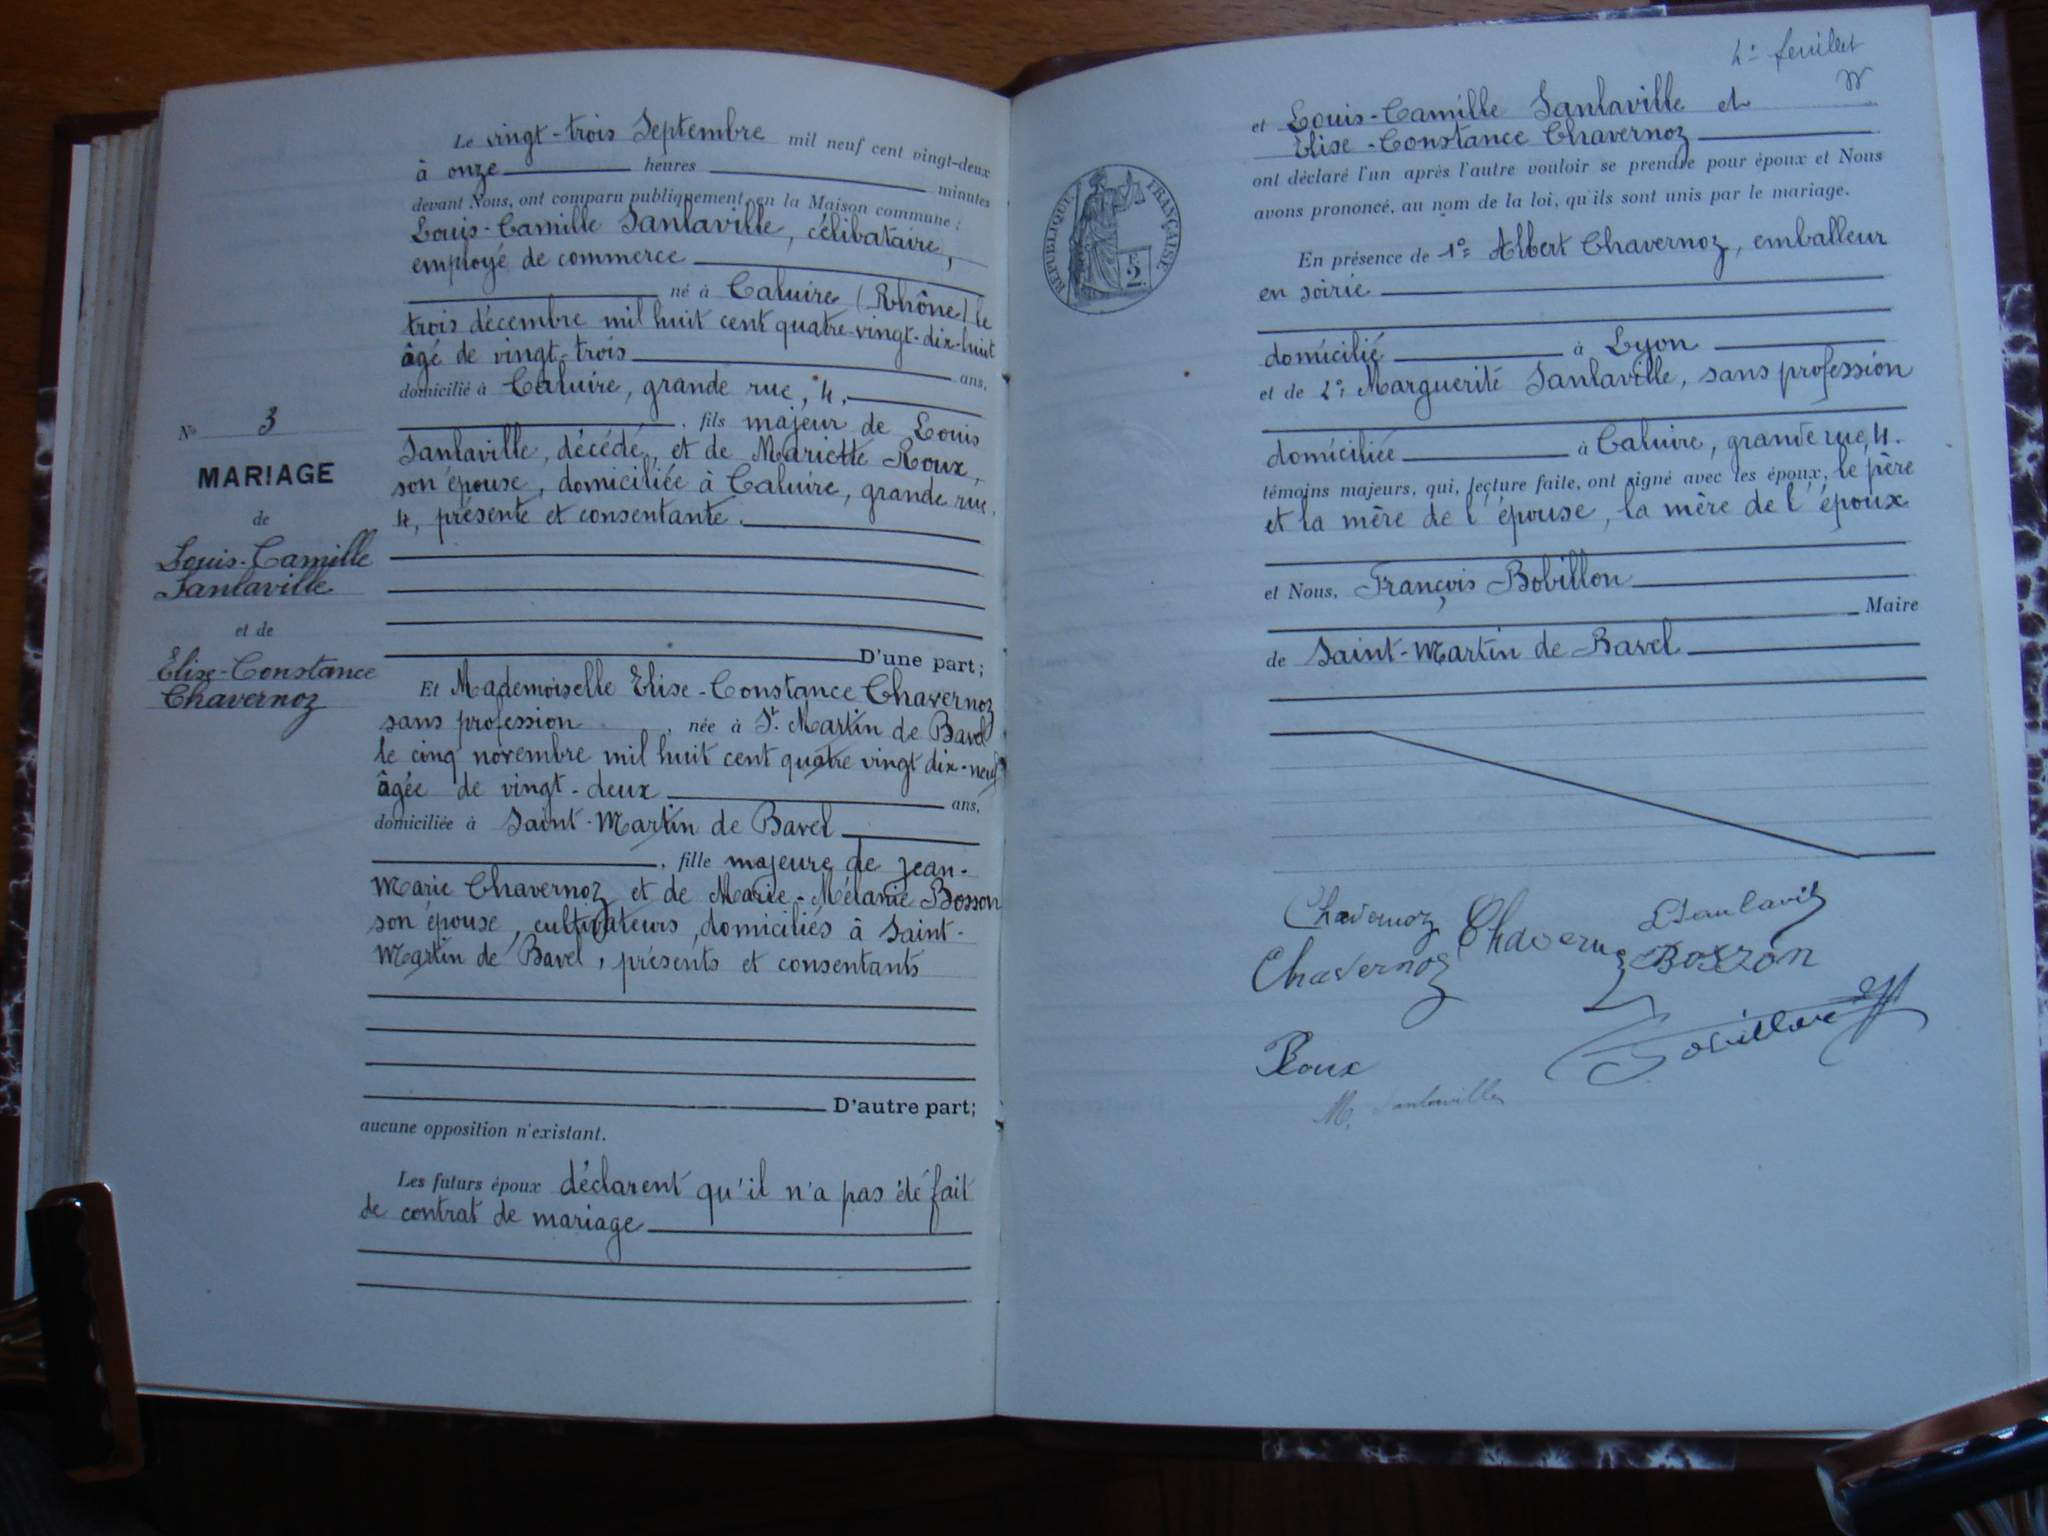 Le vingt-trois Septembre mil neuf cent vingt-deux
à onze heures minutes
devant Nous, ont comparu publiquement en la Maison commune :
Louis-Camille Sanlaville, célibataire,
employé de commerce
né à Caluire (Rhône) le
trois décembre mil huit cent quatre-vingt-dix-huit
âgé de vingt-trois ans,
domicilié à Caluire, grande rue, 4,
, fils majeur de Louis
Sanlaville, décédé, et de Mariette Roux,
son épouse, domiciliée à Caluire, grande rue,
4, présente et consentante.
D'une part;
Et Mademoiselle Elise-Constance Chavernoz
sans profession, née à St. Martin de Bavel
le cinq novembre mil huit cent quatre vingt dix-neuf
âgée de vingt-deux ans,
domiciliée à Saint-Martin de Bavel
, fille majeure de Jean-
Marie Chavernoz et de Marie-Mélanie Bosson
son épouse, cultivateurs, domiciliés à Saint-
Martin de Bavel, présents et consentants
D'autre part;
aucune opposition n'existant.
Les futurs époux déclarent qu'il n'a pas été fait
de contrat de mariage
No 3
MARIAGE
de
Louis-Camille
Sanlaville
et de
Elise-Constance
Chavernoz
4e feuillet
et Louis-Camille Sanlaville et
Elise-Constance Chavernoz
ont déclaré l'un après l'autre vouloir se prendre pour époux et Nous
avons prononcé, au nom de la loi, qu'ils sont unis par le mariage.
RÉPUBLIQUE FRANÇAISE
2
En présence de 1o: Albert Chavernoz, emballeur
en soirie
domicilié à Lyon
et de 2o: Marguerite Sanlaville, sans profession
domiciliée à Caluire, grande rue, 4.
témoins majeurs, qui, lecture faite, ont signé avec les époux, le père
et la mère de l'épouse, la mère de l'époux
et Nous, François Bobillon
Maire
de Saint-Martin de Bavel
Chavernoz Chavernoz LSanlaville
Chavernoz Bosson
Bobillon
Roux
M. Sanlaville